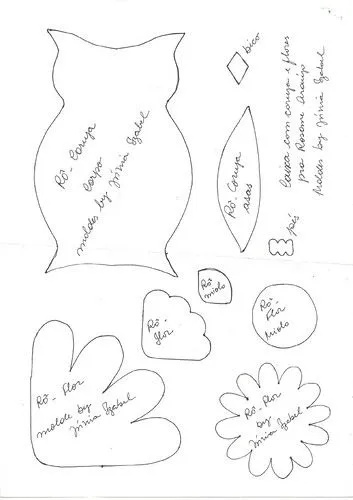 Rô - Coruja
Corpo
moldes by Jrinia Izabel
bico
Caixa com coruja e flores
pra Roseme Araujo
Moldes by Jrinia Izabel
Rô - Coruja
asas
pés
Rô-
miolo
Rô-
flor
Rô-
Flor
Miolo
Rô - Flor
molde by
Jrinia Izabel
Rô - Flor
by
Jrinia Izabel